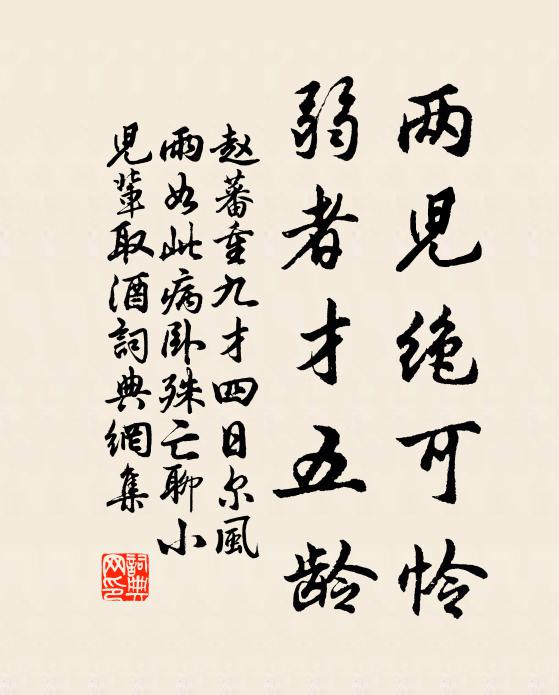 两儿绝可怜
弱者才五龄
赵蕃重九才四日尔风
雨如此病卧殊亡聊小
儿辈取酒词典网集
词典网印